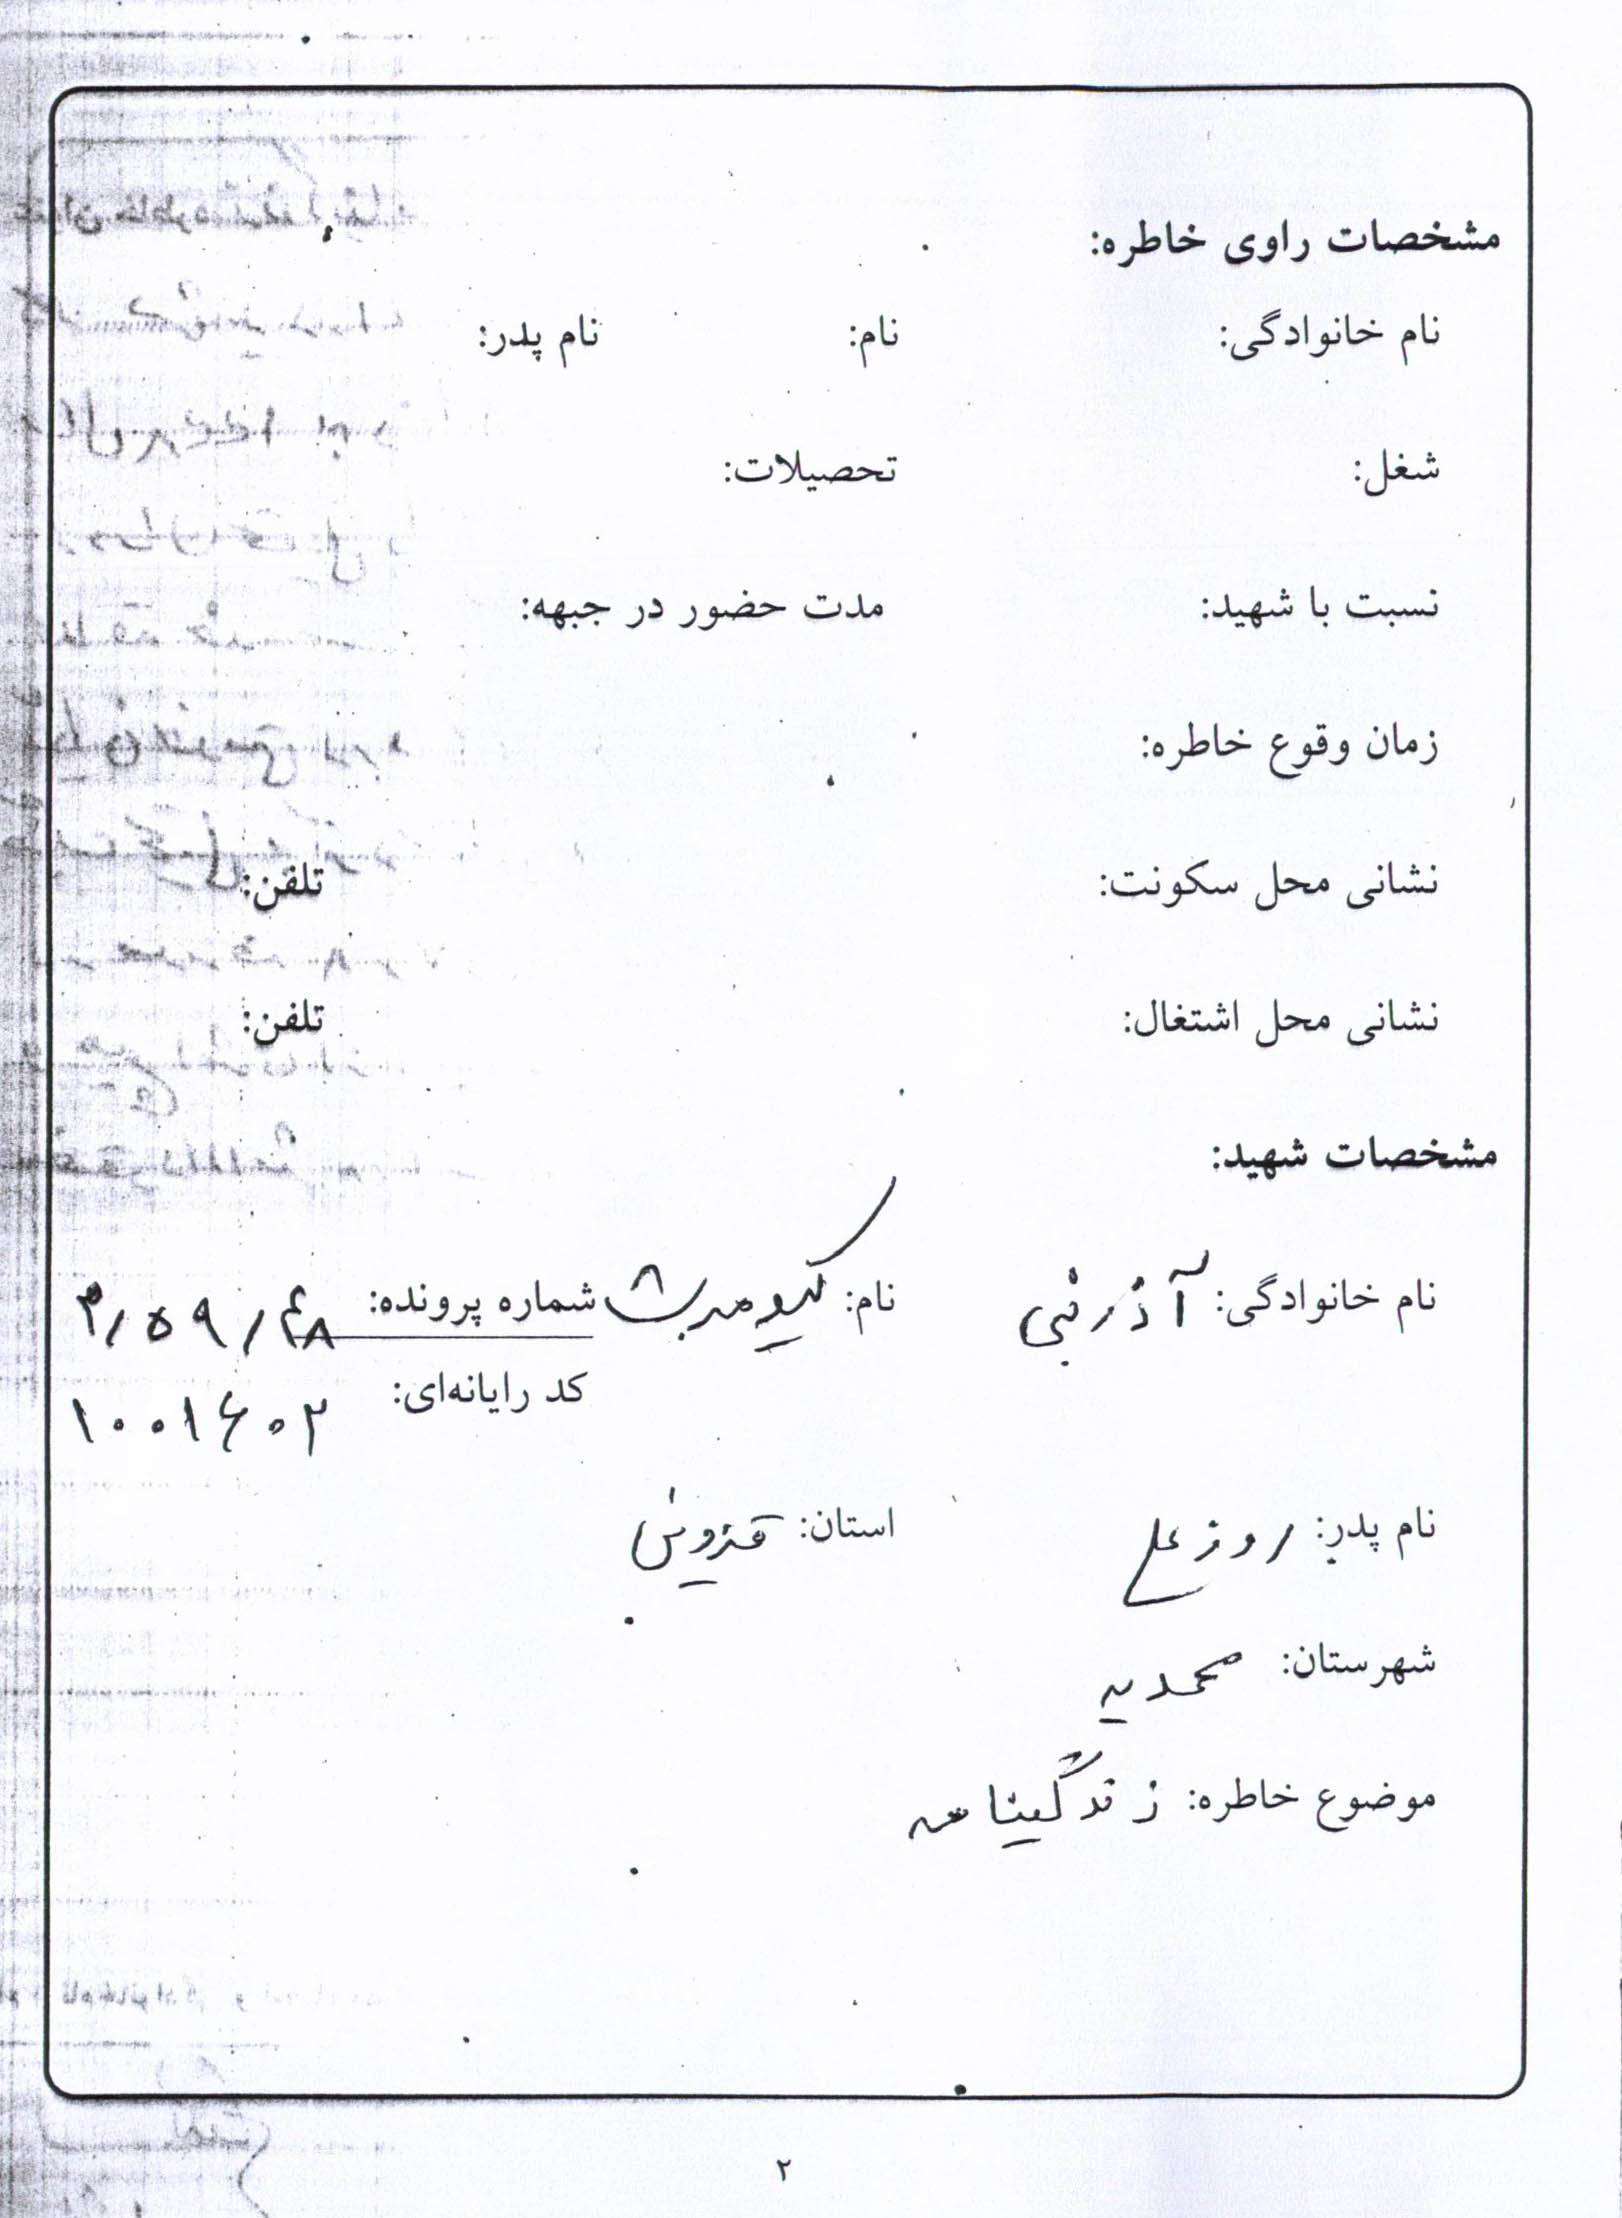 مشخصات راوی خاطره:
نام خانوادگی: نام: نام پدر:
شغل: تحصیلات:
نسبت با شهید: مدت حضور در جبهه:
زمان وقوع خاطره:
نشانی محل سکونت: تلفن:
نشانی محل اشتغال: تلفن:
مشخصات شهید:
نام خانوادگی: آذرنبی نام: کیومرث شماره پرونده: ۳/۵۹/۴۸
کد رایانه‌ای: ۱۰۰۱۶۰۲
نام پدر: روزعلی استان: قزوین
شهرستان: محمدیه
موضوع خاطره: زندگینامه
۲